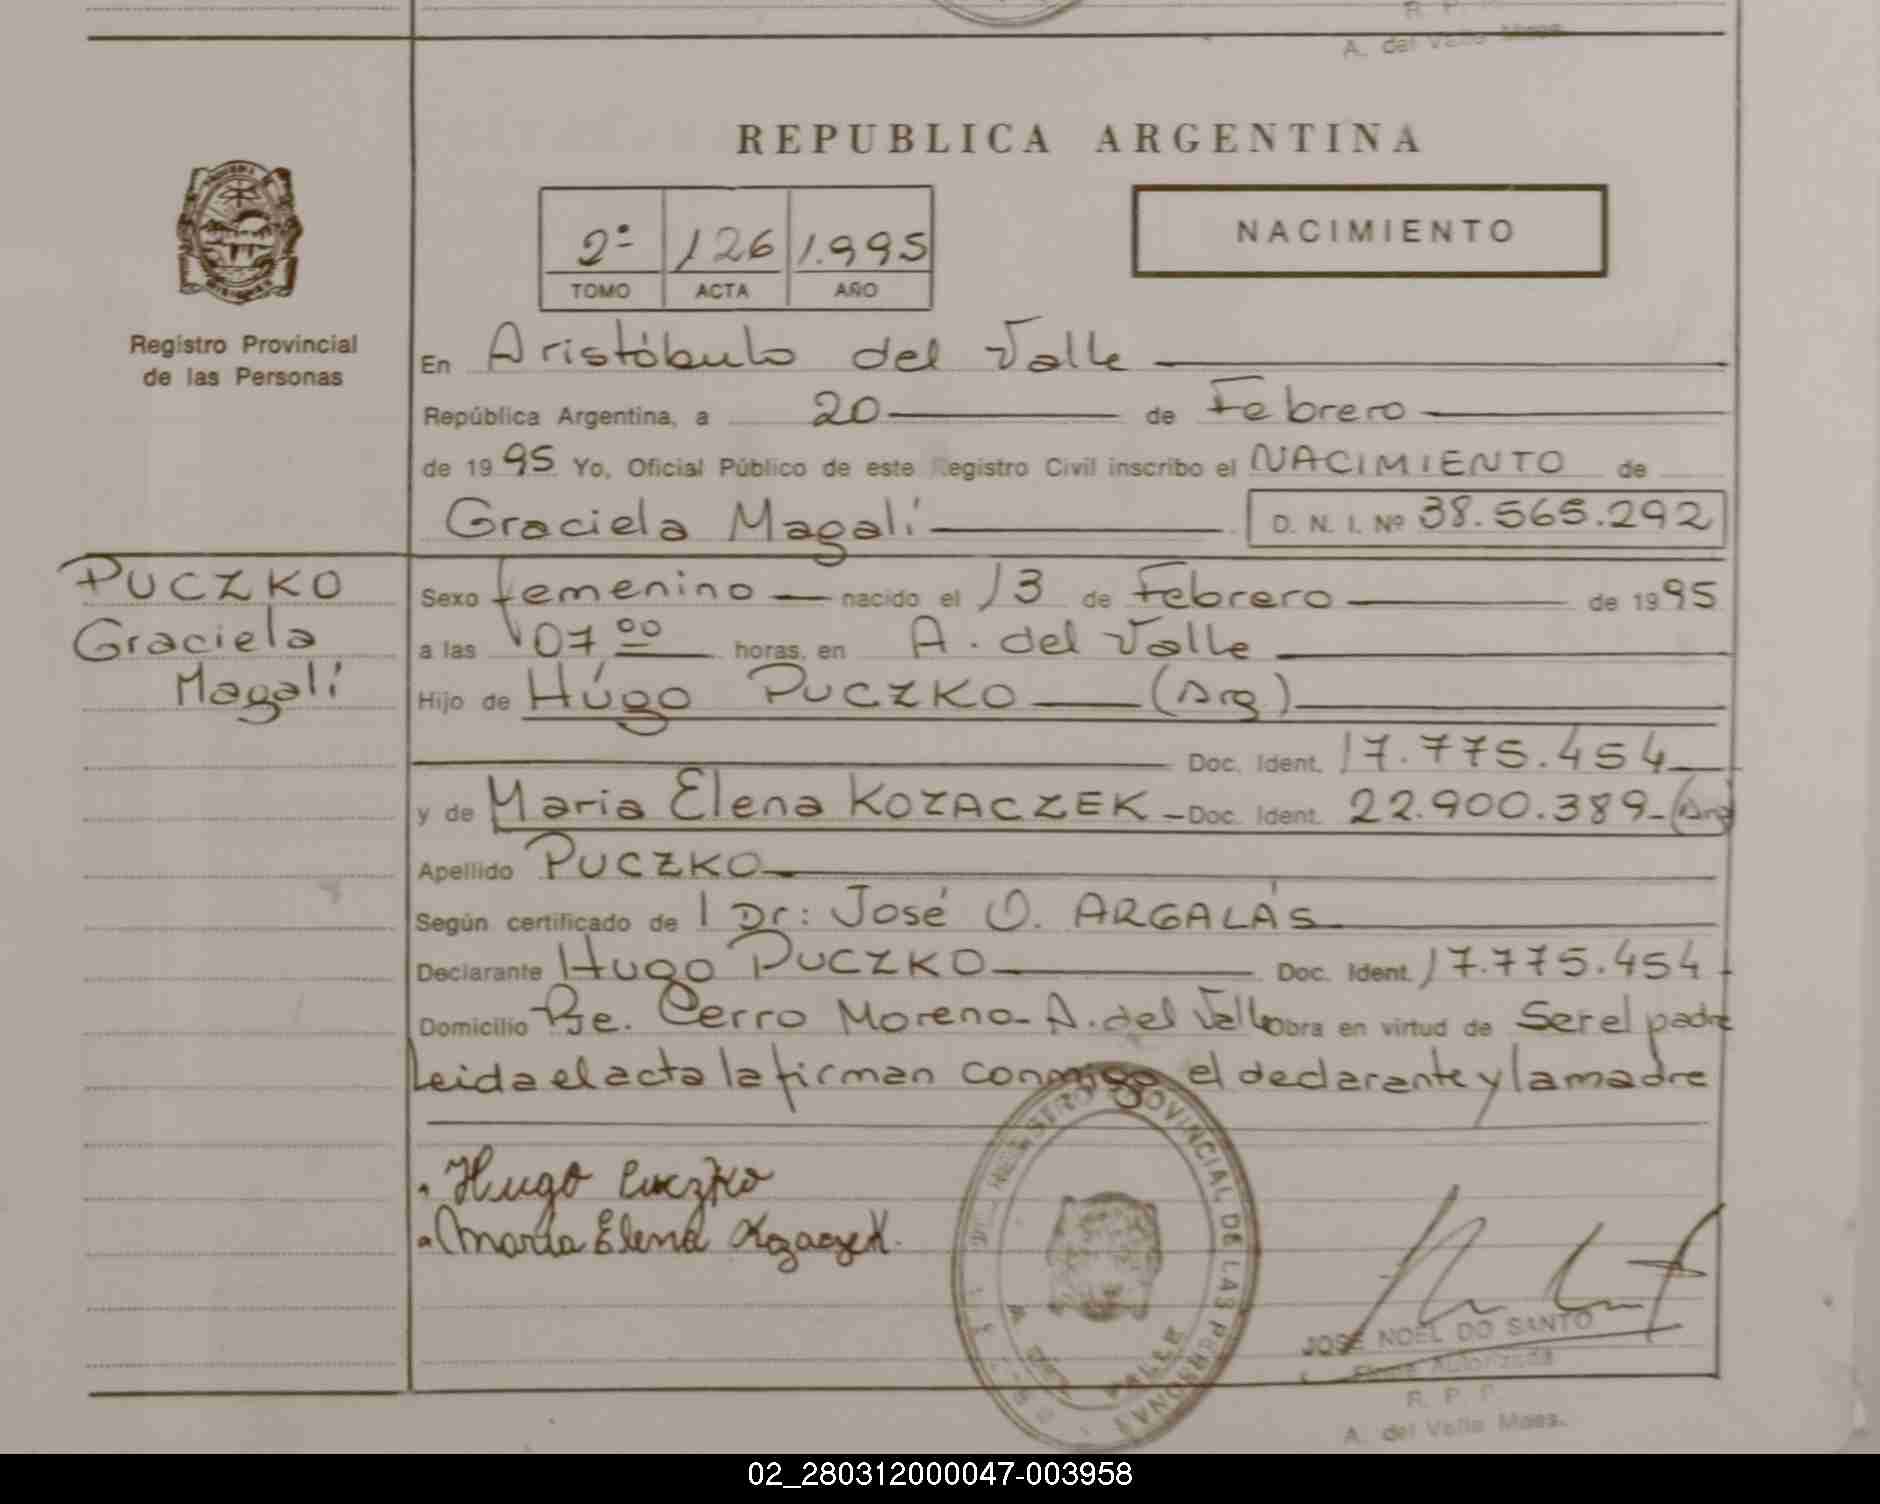 R. P.
A. del Valle Mnes.
REPUBLICA ARGENTINA
2º 126 1.995
TOMO ACTA AÑO
NACIMIENTO
Registro Provincial
de las Personas
En Aristóbulo del Valle
República Argentina, a 20 de Febrero
de 1995 Yo, Oficial Público de este Registro Civil inscribo el NACIMIENTO de
Graciela Magalí D. N. I. Nº 38.565.292
PUCZKO
Graciela
Magalí
Sexo femenino nacido el 13 de Febrero de 1995
a las 07 00 horas, en A. del Valle
Hijo de Húgo PUCZKO (Arg)
Doc. Ident. 17.775.454
y de Maria Elena KOZACZEK Doc. Ident. 22.900.389 (Arg
Apellido PUCZKO
Según certificado de Dr: José O. ARGALÁS
Declarante Hugo PUCZKO Doc. Ident. 17.775.454
Domicilio Pje. Cerro Moreno - A. del Valle obra en virtud de Ser el padre
Leida el acta la firman conmigo el declarante y la madre
Hugo Puczko
Maria Elena Kozaczek.
REGISTRO PROVINCIAL DE LAS PERSONAS
A. DEL VALLE
JOSE NOEL DO SANTO
Firma Autorizada
R. P. P.
A. del Valle Mnes.
02_280312000047-003958